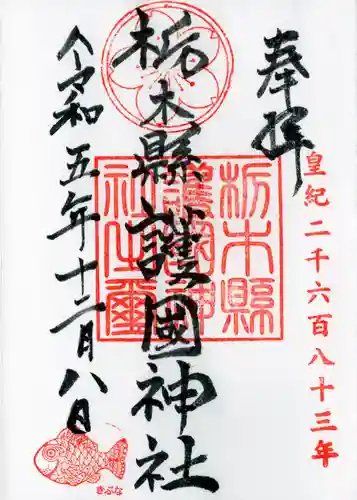 奉拝
皇紀二千六百八十三年
栃木縣護國神社
栃木縣護國神社之璽
令和五年十二月八日
きぶな